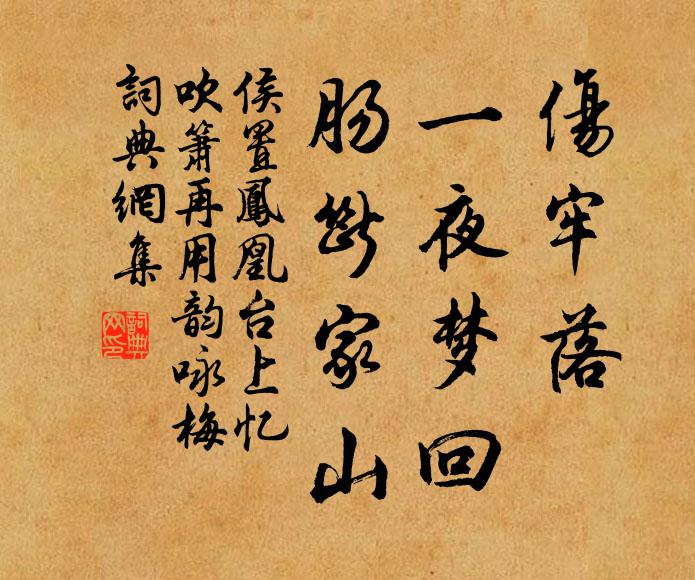 傷牢落
一夜梦回
肠断家山
侯置鳳凰台上忆
吹簫再用韵咏梅
詞典網集
詞典网印